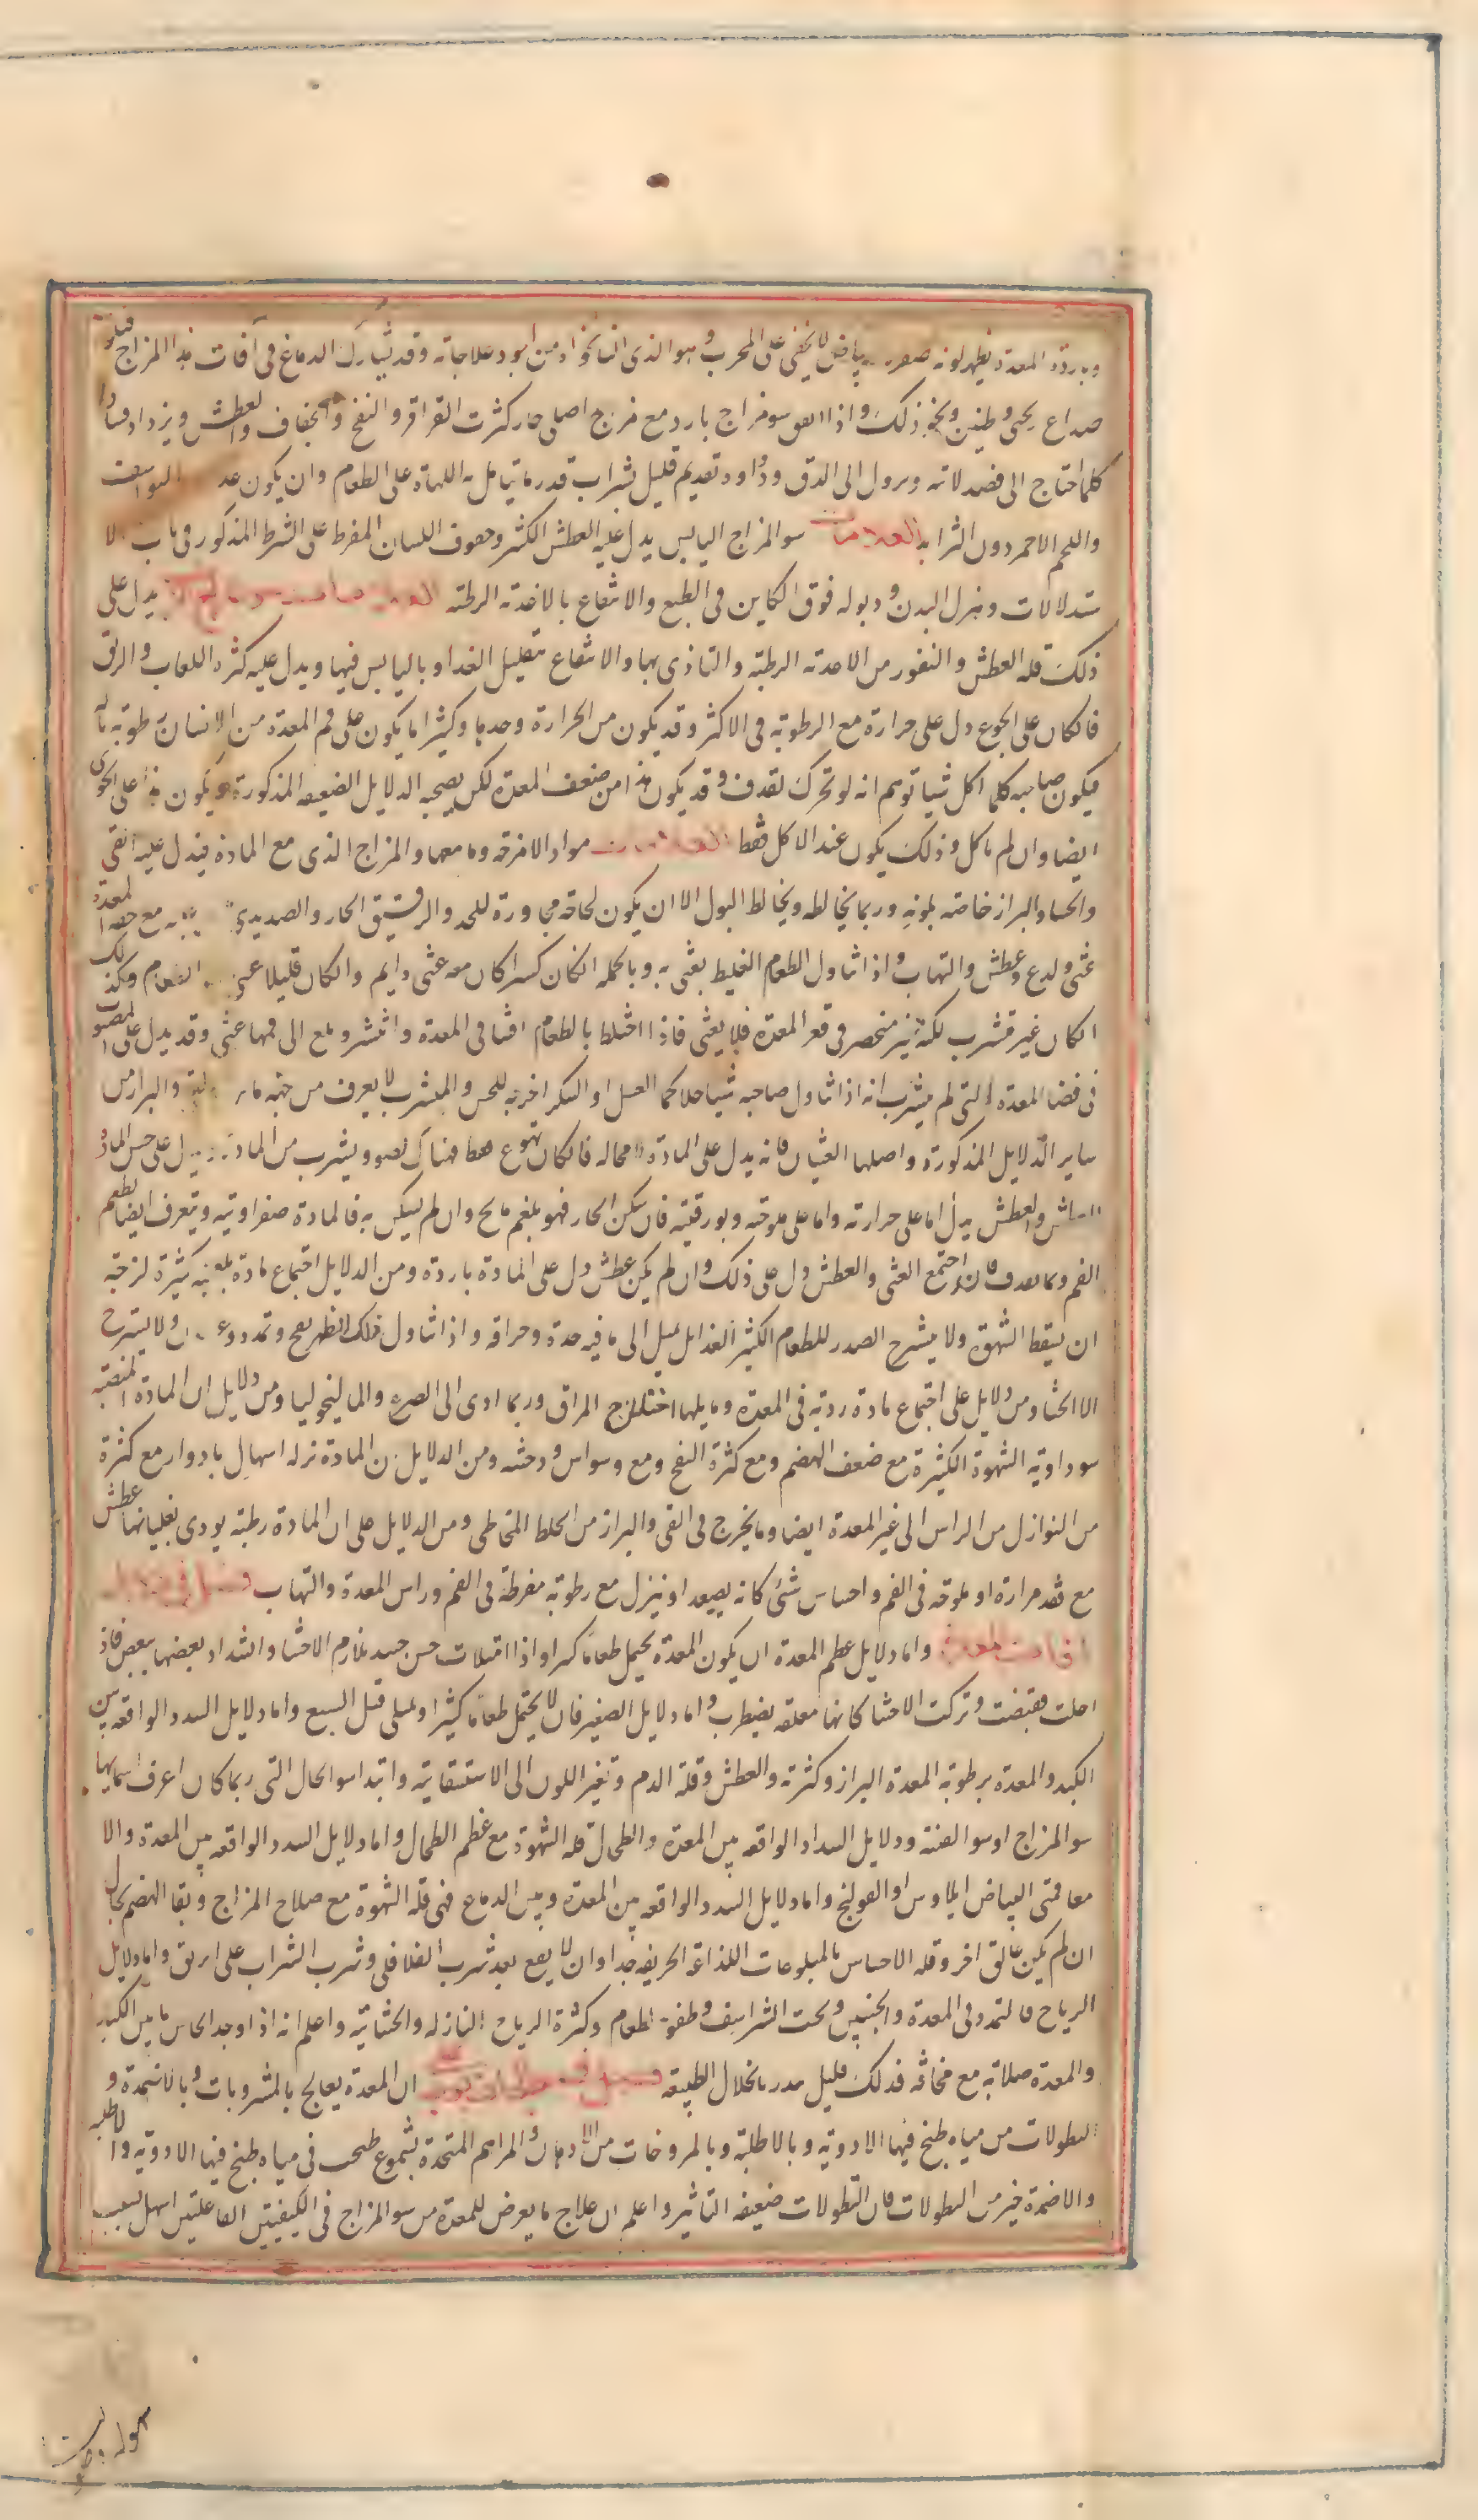 وبرودة المعدة يظهر لونه صفرة بياض لا يخفى على المجرب وهو الذى النانخواه من اجود علاجاته وقد يشارك الدماغ فى آفات هذا المزاج فيكون
صداع ريحى وطنين ونحو ذلك واذا اتفق سو مزاج بارد مع مزاج اصلى حار كثرت القراقر والنفخ والجفاف والعطش ويزداد فسادا
كلما احتاج الى فصد لابد ويرول الى الدق ودواوه تقديم قليل شراب قدر ما يتامل به اللهاة على الطعام وان يكون
واللحم الاحمر دون الثرايد العلامات سو المزاج اليابس يدل عليه العطش الكثير وجفوف اللسان المفرط على الشرط المذكور فى باب الا
ستدلالات وهزل البدن وذبوله فوق الكاين فى الطبع والانتفاع بالاغذية الرطبة يدل على
ذلك قلة العطش والنفور من الاغذية الرطبة والتاذى بها والانتفاع بتقليل الغدا وباليابس فيها ويدل عليه كثرة اللعاب والريق
فان كان على الجوع دل على حرارة مع الرطوبة فى الاكثر وقد يكون من الحرارة وحدها وكثيرا ما يكون على فم المعدة من الانسان رطوبة بالة
فيكون صاحبه كلما اكل شيا توهم انه لو تحرك لقذف وقد يكون هذا من ضعف المعدة لكن يصحبه الدلايل الضعيفه المذكورة ويكون هذا على الخوى
ايضا وان لم ياكل وذلك يكون عند الاكل فقط العلامات مواد الامزجه وما معها والمزاج الذى مع المادة فيدل عليه القى
والجشا والبراز خاصة بلونه وربما يخالطه ويخالط البول الا ان يكون لحاقه مجاورة للحد والرقيق الحار والصديدى مع خفة المعدة
غثى ولدع وعطش والتهاب واذا تناول الطعام الغليظ يغثى به وبالجملة ان كان كثيرا كان معه غثى دايم وان كان قليلا الطعام وكذلك
ان كان غير متشرب لكنه منحصر فى قعر المعدة فلا يغثى فاذا اختلط بالطعام افشا فى المعدة وانتشر وبلغ الى فمها غثى وقد يدل على المصبوب
فى فضا المعدة التى لم يتشرب انه اذا تناول صاحبه شيا جلا كما العسل او السكر اخرجه للحس والمتشرب لا يعرف من جهة والبراز من
ساير الدلايل المذكورة واصلها الغثيان فانه يدل على المادة لا محاله فان كان تهوع فقط فهناك لصوق وتشرب من المادة ويدل على جنس المادة
العطش والعطش يدل اما على حرارته واما على ملوحته وبورقيته فان سكن الحار فهو بلغم مالح وان لم يسكن به فالمادة صفراوية ويتعرف ايضا بطعم
الفم وبما يقدف فان اجتمع الغثى والعطش دل على ذلك وان لم يكن عطش دل على المادة باردة ومن الدلايل اجتماع مادة بلغمية كثيرة لزجة
ان يسقط الشهوة ولا ينشرح الصدر للطعام الكثير الغذا بل يميل الى ما فيه حدة وحرافة واذا تناول ذلك ظهر نفخ وتمدد ولا يستريح
الا بالجشا ومن دلايل على اجتماع مادة ردية فى المعدة وما يليها اختلاج المراق وربما ادى الى الصرع والماليخوليا ومن دلايل ان المادة المنصبه
سوداوية الشهوة الكثيرة مع ضعف الهضم ومع كثرة النفخ ومع وسواس ووحشه ومن الدلايل ان المادة نزله اسهال بادوار مع كثرة
من النوازل من الراس الى غير المعدة ايضا وما يخرج فى القى والبراز من الخلط المخاطى ومن الدلايل على ان المادة رطبة يودى بغليانها عطش
مع فقد حرارة او ملوحة فى الفم واحساس شئ كانه يصعد او ينزل مع رطوبة مفرطة فى الفم وراس المعدة والتهاب فصل فى دلايل
افات المعدة واما دلايل عظم المعدة ان يكون المعدة يحتمل طعاما كثيرا واذا امتلات حسن حينئذ بتلازم الاحشا واشتداد بعضها ببعض فاذا
اخلت تقبضت وتركت الاحشا كانها معلقه يضطرب واما دلايل الصغير فان لا يحتمل طعاما كثيرا ويمتلى قبل الشبع واما دلايل السدد الواقعه بين
الكبد والمعدة برطوبة المعدة البراز وكثرته والعطش وقلة الدم وتغير اللون الى الاستسقاية وابتدا سو الحال التى ربما كان اعرف اسمايها
سو المزاج او سو القنية ودلايل السداد الواقعه بين المعدة والطحال قلة الشهوة مع عظم الطحال واما دلايل السدد الواقعه بين المعدة والا
معا فتى البياض ايلاوس او القولنج واما دلايل السدد الواقعه بين المعدة وبين الدماغ فهى قلة الشهوة مع صلاح المزاج وبقا الهضم بحاله
ان لم يكن عايق اخر وقلة الاحساس بالمبلوعات اللذاعة الحريفه جدا وان لا يقع بعد شرب الفلافلى وشرب الشراب على الريق واما دلايل
الرياح فالتمدد فى المعدة والجنبين وتحت الشراسيف وطفو الطعام وكثرة الرياح النازله والجشائية واعلم انه اذا وجد الحاس ما بين الكبد
والمعدة صلابة مع نحافه فذلك دليل منذر بانحلال الطبيعه ان المعدة يعالج بالمشروبات وبالاضمدة و
النطولات من مياه طبخ فيها الادوية وبالاطلية وبالمروخات من الادهان والمراهم المتخذة بشموع طبخت فى مياه طبخ فيها الادوية والاطلية
والاضمدة خير من النطولات فان النطولات ضعيفه التاثير واعلم ان علاج ما يعرض للمعدة من سو المزاج فى الكيفيتين الفاعلتين اسهل بسبب